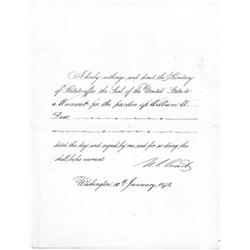 I hereby authorize and direct the Secretary
of State to affix the Seal of the United States to
a Warrant for the pardon of William H.
dated this day and signed by me, and for so doing this
shall be his warrant.
U. S. Grant
Washington, 10th January, 1872